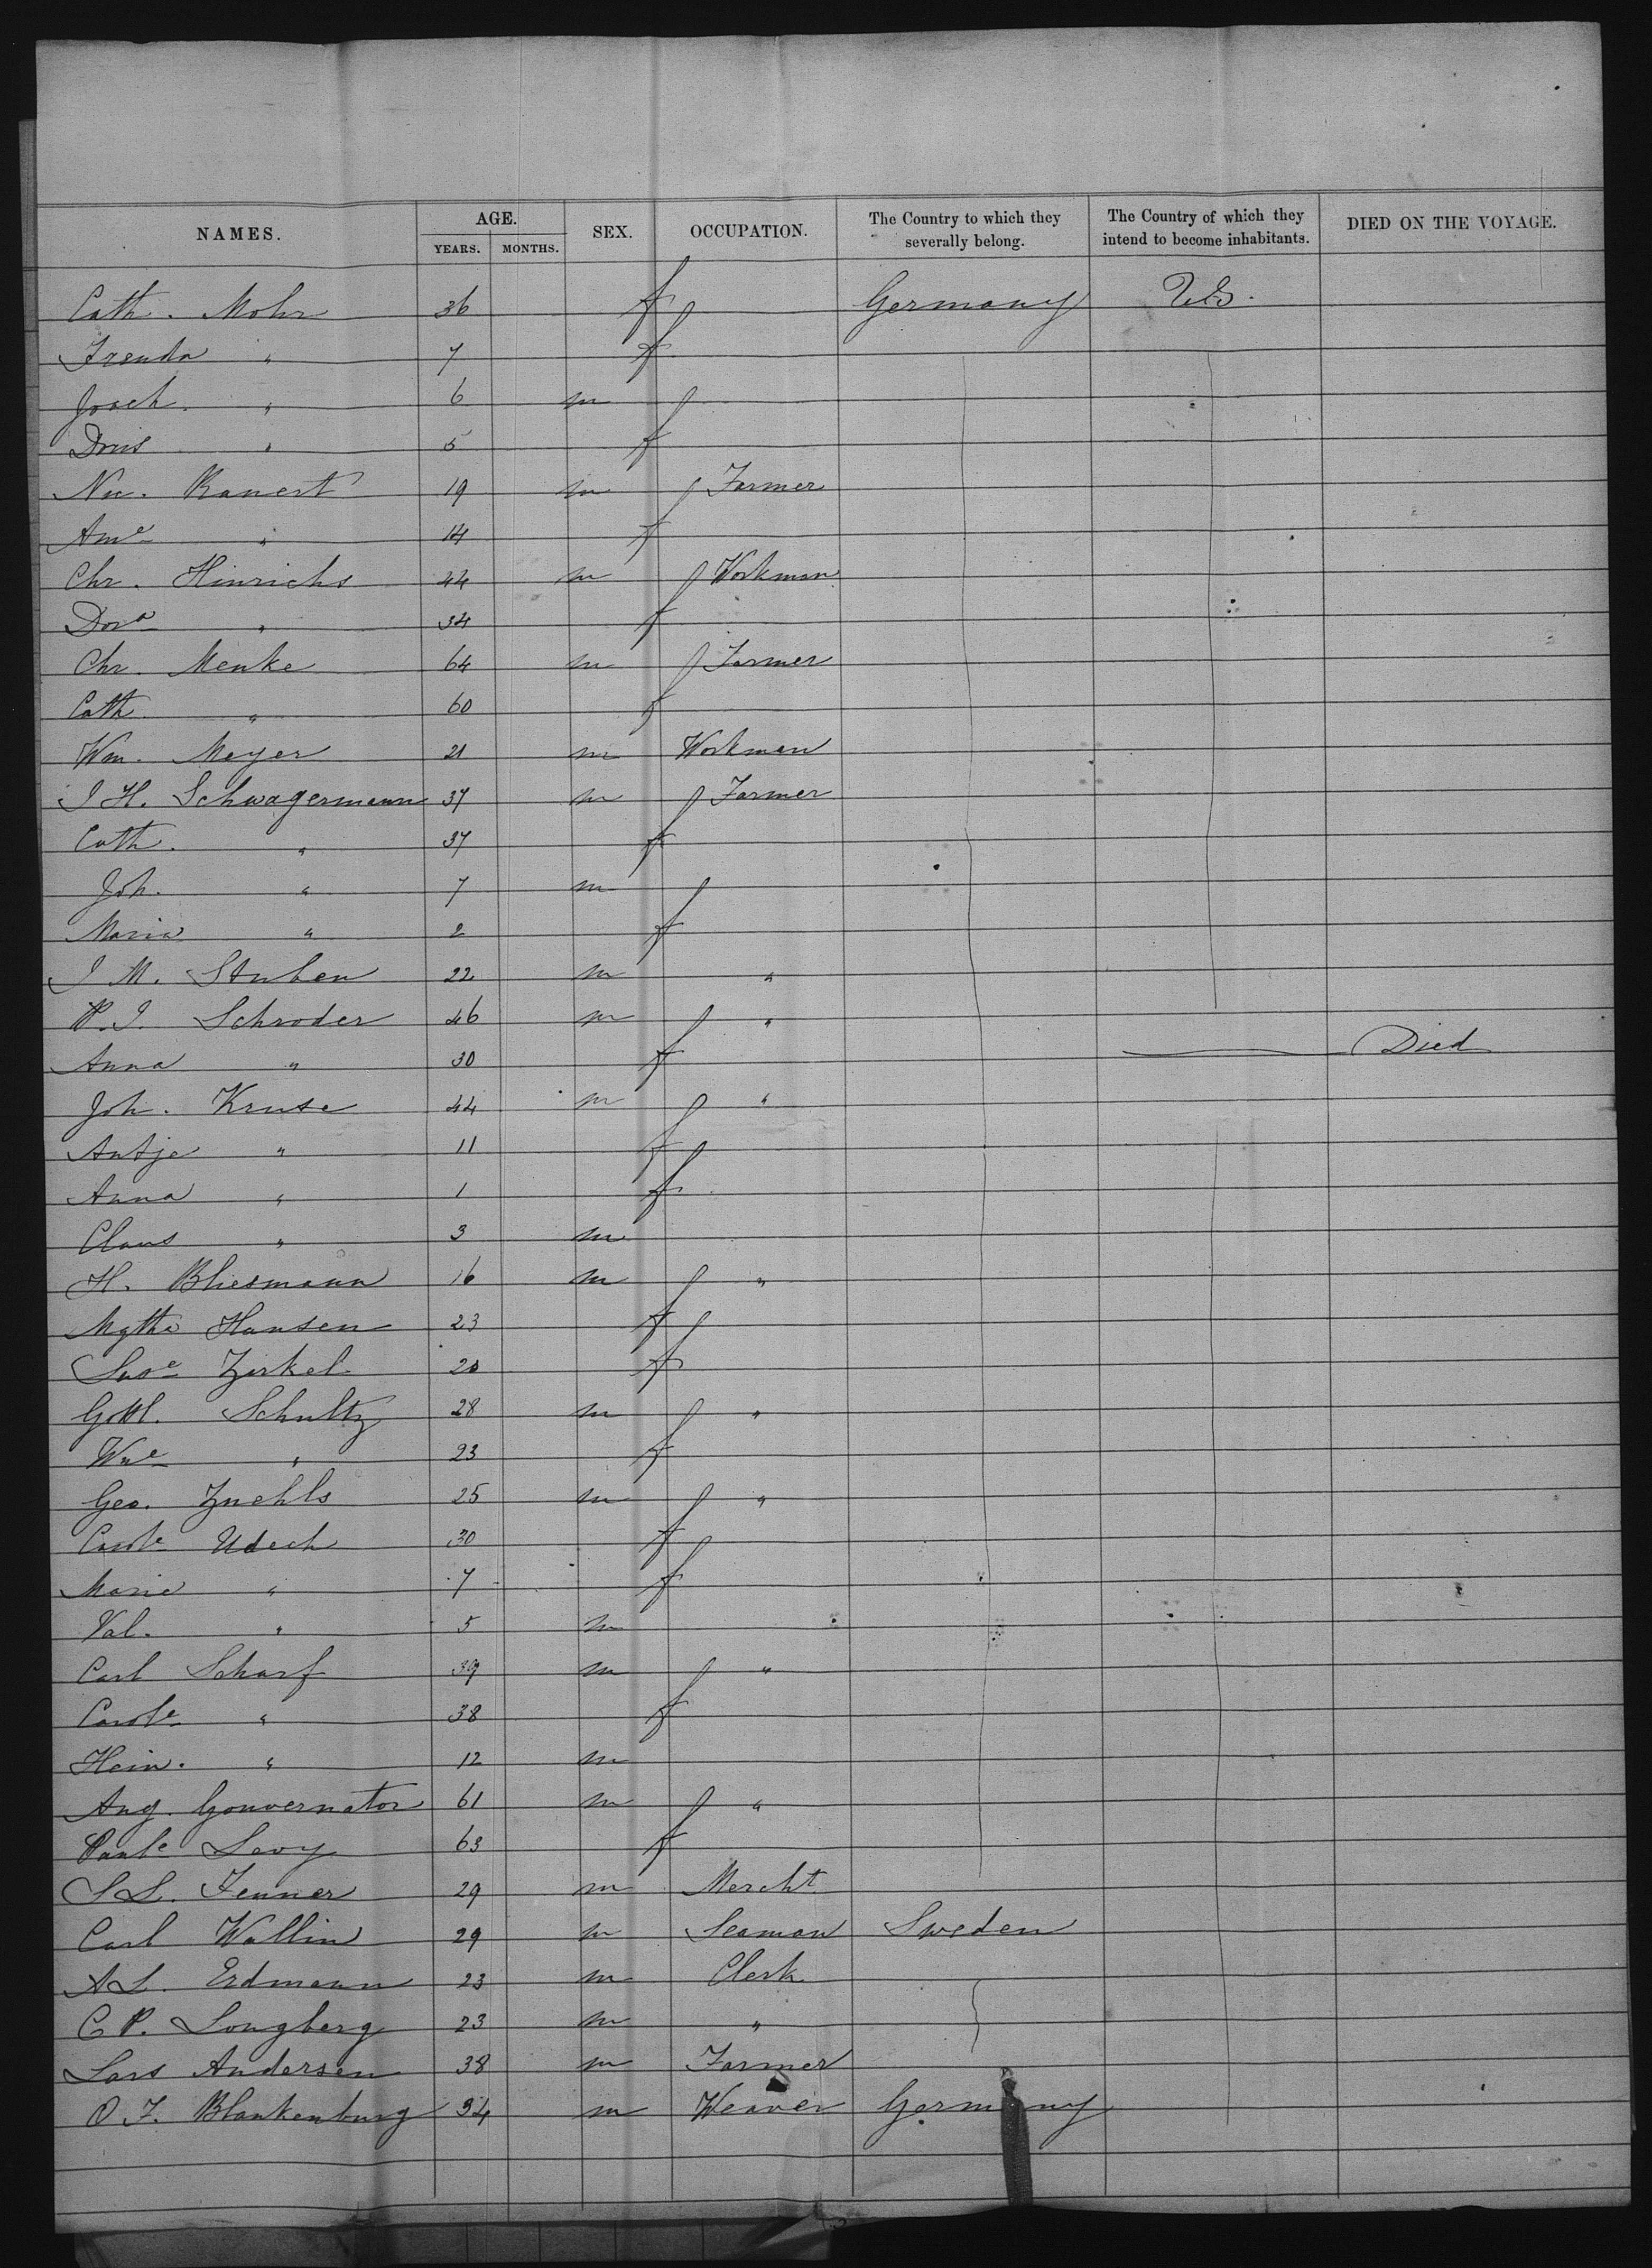 NAMES. AGE. SEX. OCCUPATION. The Country to which they severally belong. The Country of which they intend to become inhabitants. DIED ON THE VOYAGE.
YEARS. MONTHS.
Cath. Mohr 36 f Germany U.S.
Frenda " 7 f
Joach. " 6 m
Doris " 5 f
Nic. Kanert 19 m Farmer
Ame " 14 f
Chr. Hinrichs 44 m Workman
Dora " 34 f
Chr. Menke 64 m Farmer
Cath " 60 f
Wm. Meyer 21 m Workman
J H. Schwagermann 37 m Farmer
Cath. " 37 f
Joh. " 7 m
Maria " 2 f
J M. Stuben 22 m "
P. J. Schroder 46 m "
Anna " 30 f Died
Joh. Kruse 44 m "
Antje " 11 f
Anna " 1 f
Claus " 3 m
H. Bliesmann 16 m "
Mgtha Hansen 23 f
Suse Zirkel 20 f
Gottl. Schultz 28 m "
Wne " 23 f
Geo. Zuehls 25 m "
Carole Udech 30 f
Marie " 7 f
Val. " 5 m
Carl Scharf 39 m "
Carole " 38 f
Hein. " 12 m
Aug. Gouvernator 61 m "
Paule Levy 63 f
S L. Fenner 29 m Mercht.
Carl Wallin 29 m Seaman Sweden
A L. Erdmann 23 m Clerk
C P. Longberg 23 m "
Lars Andersen 38 m Farmer
O F. Blankenburg 34 m Weaver Germany